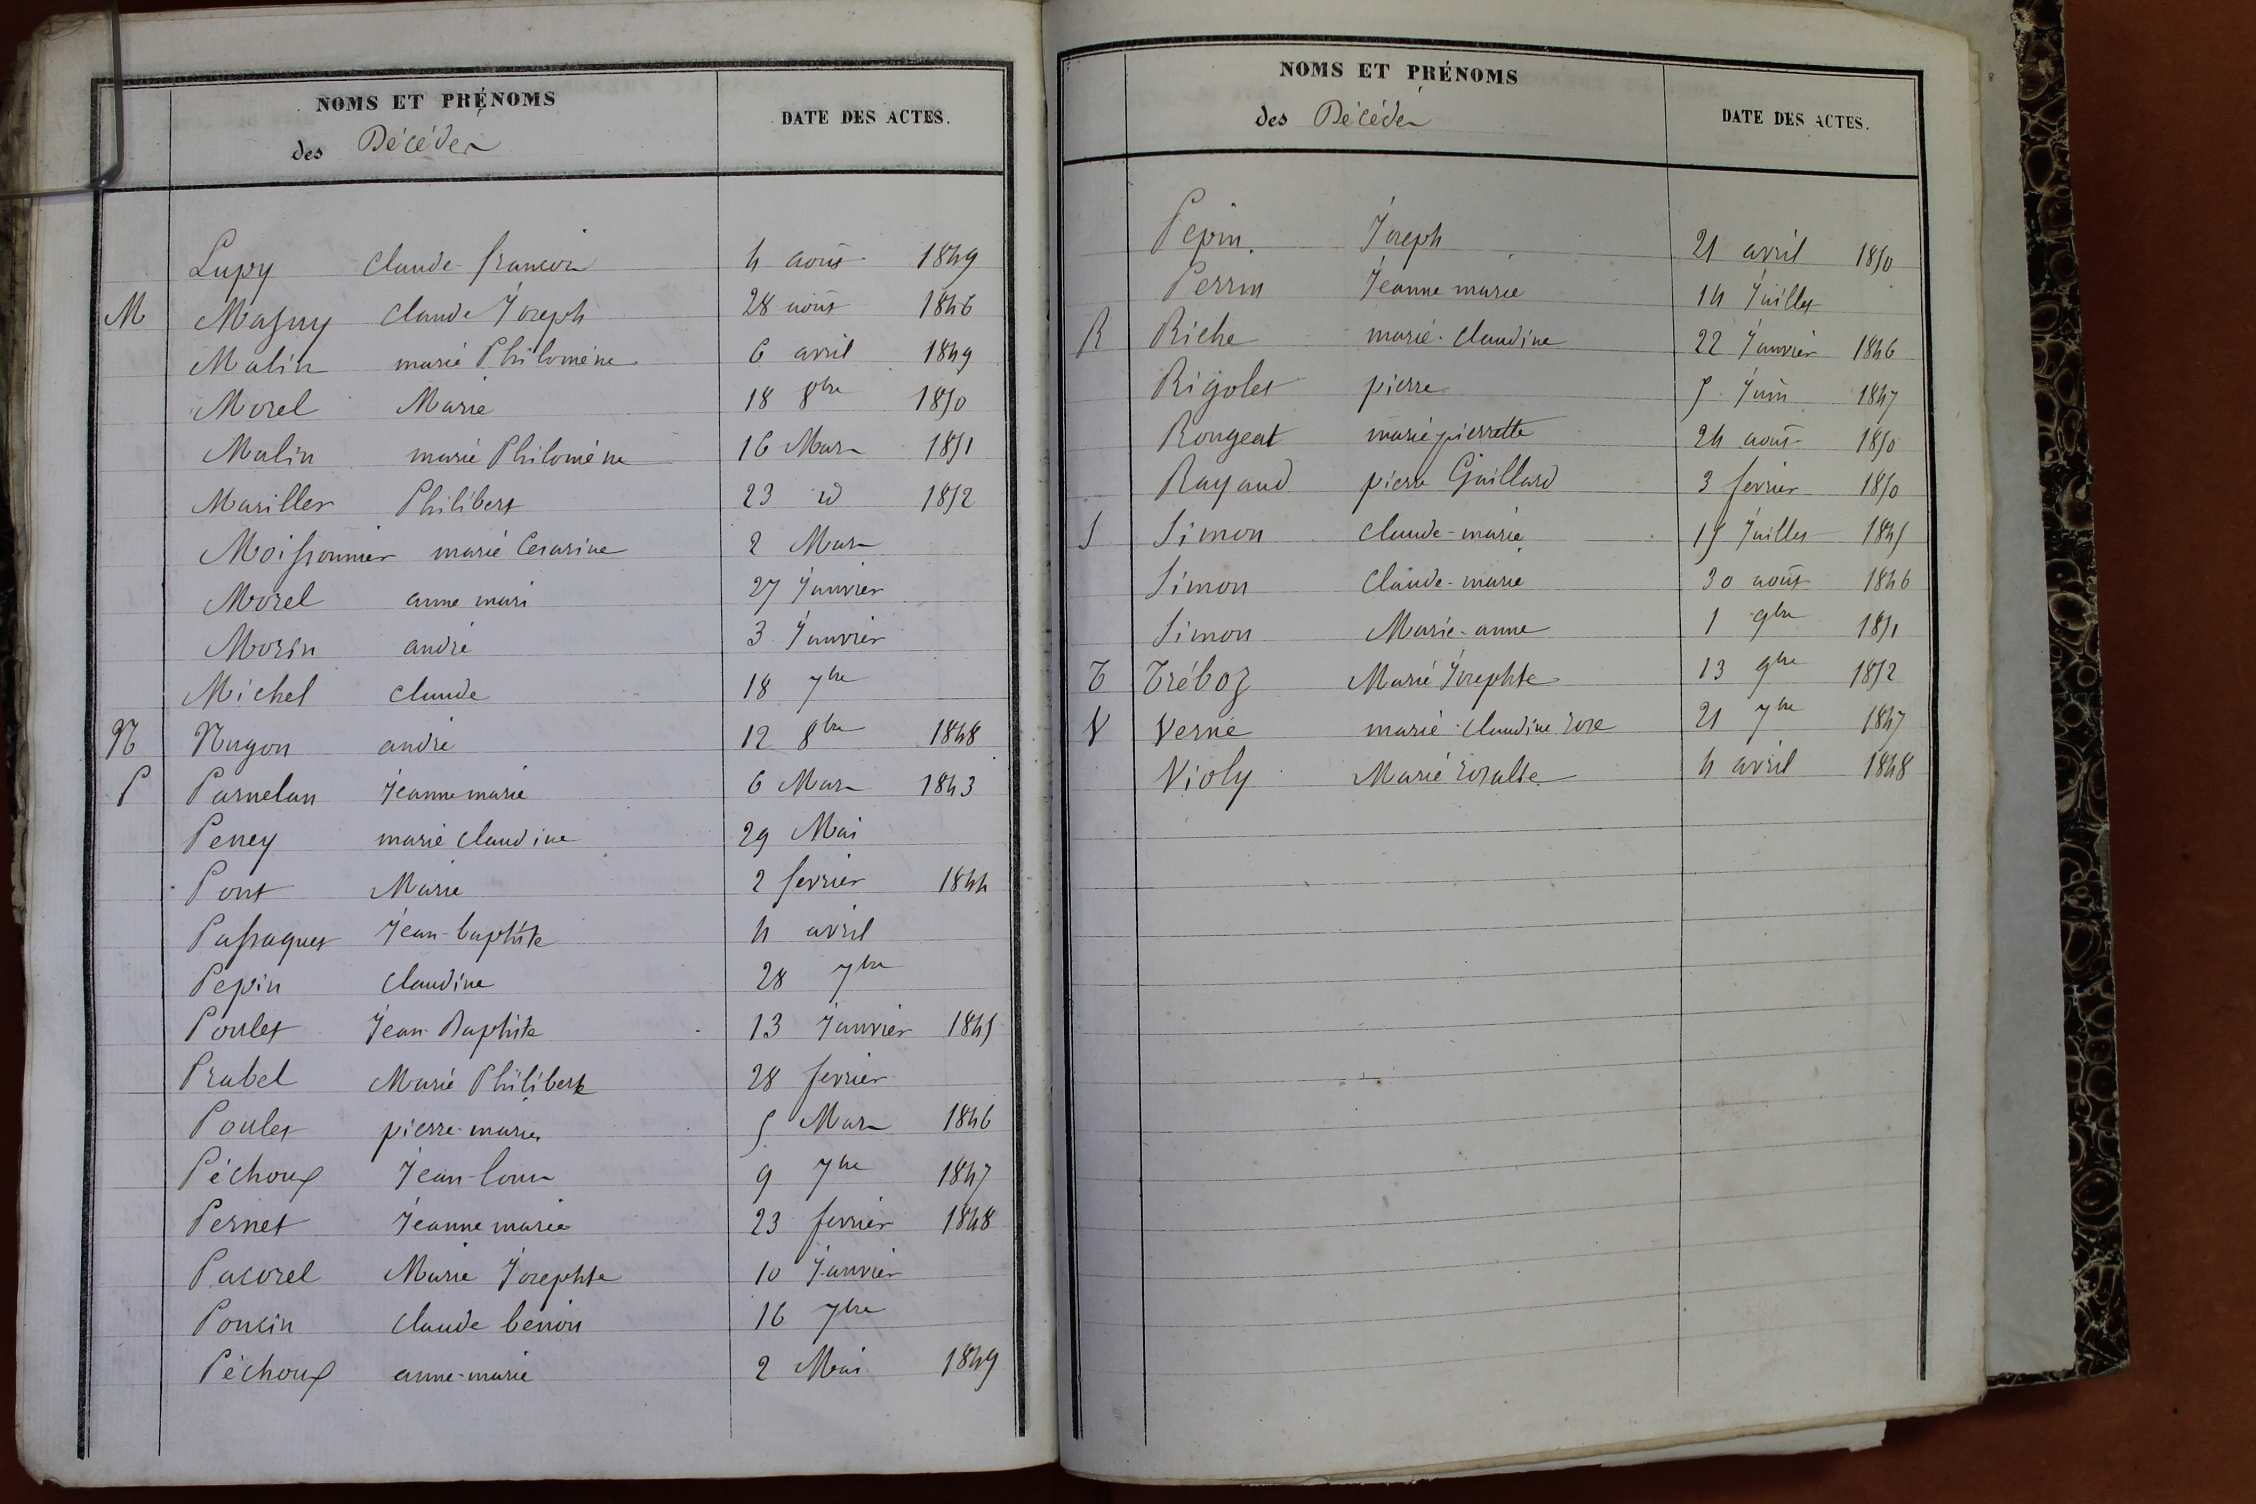 NOMS ET PRÉNOMS
des Décédés
DATE DES ACTES.
Lupy Claude-françois 4 août 1849
M Massuy Claude Joseph 28 août 1846
Malin marie Philomène 6 avril 1849
Morel Marie 18 8bre 1850
Malin marie Philomène 16 Mars 1851
Mariller Philibert 23 id 1852
Moissonnier marie Cesarine 2 Mars
Morel anne mari 27 Janvier
Morin andré 3 Janvier
Michel Claude 18 7bre
N Nugon andré 12 8bre 1848
P Parnelan Jeanne marie 6 Mars 1843
Peney marie Claudine 29 Mai
Pont Marie 2 fevrier 1844
Passaquet Jean-baptiste 4 avril
Pepin Claudine 28 7bre
Poulet Jean Baptiste 13 Janvier 1845
Prabel Marie Philiberte 28 fevrier
Poulet pierre-marie 5 Mars 1846
Péchoux Jean-Louis 9 7bre 1847
Pernet Jeanne marie 23 fevrier 1848
Pacorel Marie Josephte 10 Janvier
Poncin Claude benoit 16 7bre
Péchoux anne-marie 2 Mai 1849
NOMS ET PRÉNOMS
des Décédés
DATE DES ACTES.
Pepin Joseph 21 avril 1850
Perrin Jeanne marie 14 Juillet
R Riche marie-Claudine 22 Janvier 1846
Rigolet pierre 5 Juin 1847
Rongeat marie pierrette 24 août 1850
Rayaud pierre Gaillard 3 fevrier 1850
S Simon Claude-marie 15 Juillet 1845
Simon Claude-marie 30 août 1846
Simon Marie-anne 1 9bre 1851
T Tréboz Marie Josephte 13 9bre 1852
V Verne marie-Claudine Rose 21 7bre 1847
Violy Marie Rosalie 4 avril 1848